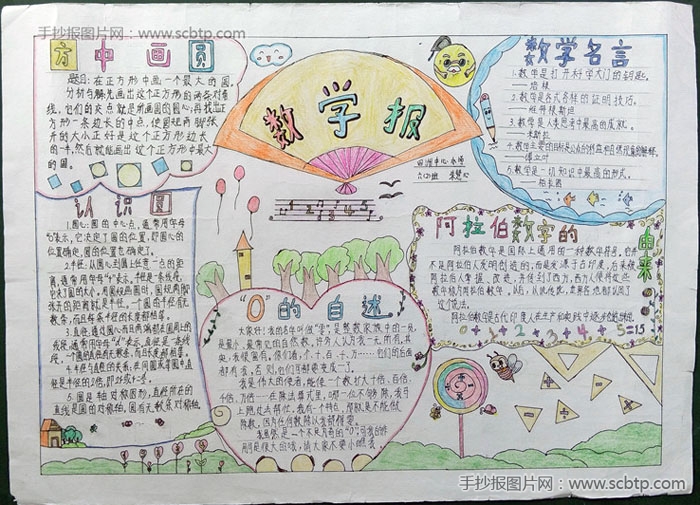 手抄报图片网:www.scbtp.com
方中画圆
题目:在正方形中画一个最大的圆。
分析与解:先画出这个正方形的两条对角
线,它们的交点就是所画圆的圆心,再找出正
方形一条边长的中点,使圆规两脚张
开的大小正好是这个正方形边长
的一半,然后就能画出这个正方形中最大
的圆。
数学报
四维中心小学
数学名言
1.数学是打开科学大门的钥匙。
——培根
2.数学是各式各样的证明技巧。
——维特根斯坦
3.数学是人类思考中最高的成就。
——米斯拉
4.数学主要的目标是公众的利益和自然现象的解释。
——傅立叶
5.数学是一切知识中最高的形式。
——柏拉图
认识圆
1.圆心:圆的中心点,通常用字母
“O”表示,它决定了圆的位置,即圆心的
位置确定,圆的位置也确定了。
2.半径:从圆心到圆上任意一点的距
离,通常用字母“r”表示,半径是一条线段,
它决定了圆的大小,用圆规画圆时,圆规两脚
张开的距离就是半径,一个圆的半径有无
数条,而且每条半径的长度都相等。
3.直径:通过圆心而且两端都在圆周上的
线段,通常用字母“d”表示,直径是一条线
段,一个圆的直径有无数条,而且长度都相等。
4.半径与直径的关系:在同圆或等圆中,直
径是半径的2倍,即2r或d÷2。
5.圆是轴对称图形,直径所在的
直线是圆的对称轴,圆有无数条对称轴。
“0”的自述
大家好!我的名字叫做“零”,是整数家族中的一员,
是最小、最常见的自然数,许多人认为我一无所有,其
实,我很富有。你们看,个、十、百、千、万……它们的后面
都有我,否则,它们可都要变成一了。
我是伟大的使者,能使一个数扩大十倍、百倍、
千倍、万倍……在除法算式里,哪一位不够除,我马
上跑过去帮忙,我有一个特点,那就是不能做
除数,因为任何数除以我都得零。
我虽然是一个不足为奇的“0”,可我的作
用是很大的哦,请大家不要小瞧我
阿拉伯数字的由来
阿拉伯数字是国际上通用的一种数学符号,它并
不是阿拉伯人发明创造的,而是发源于古印度,后来被
阿拉伯人掌握、改进,并传到了西方,西方人便将这些
数字称为阿拉伯数字。以后,以讹传讹,世界各地都认同了
这个说法。
阿拉伯数字是古代印度人在生产和实践中逐步创造出来的。
0+1+2+3+4+5=15
手抄报图片网:www.scbtp.com